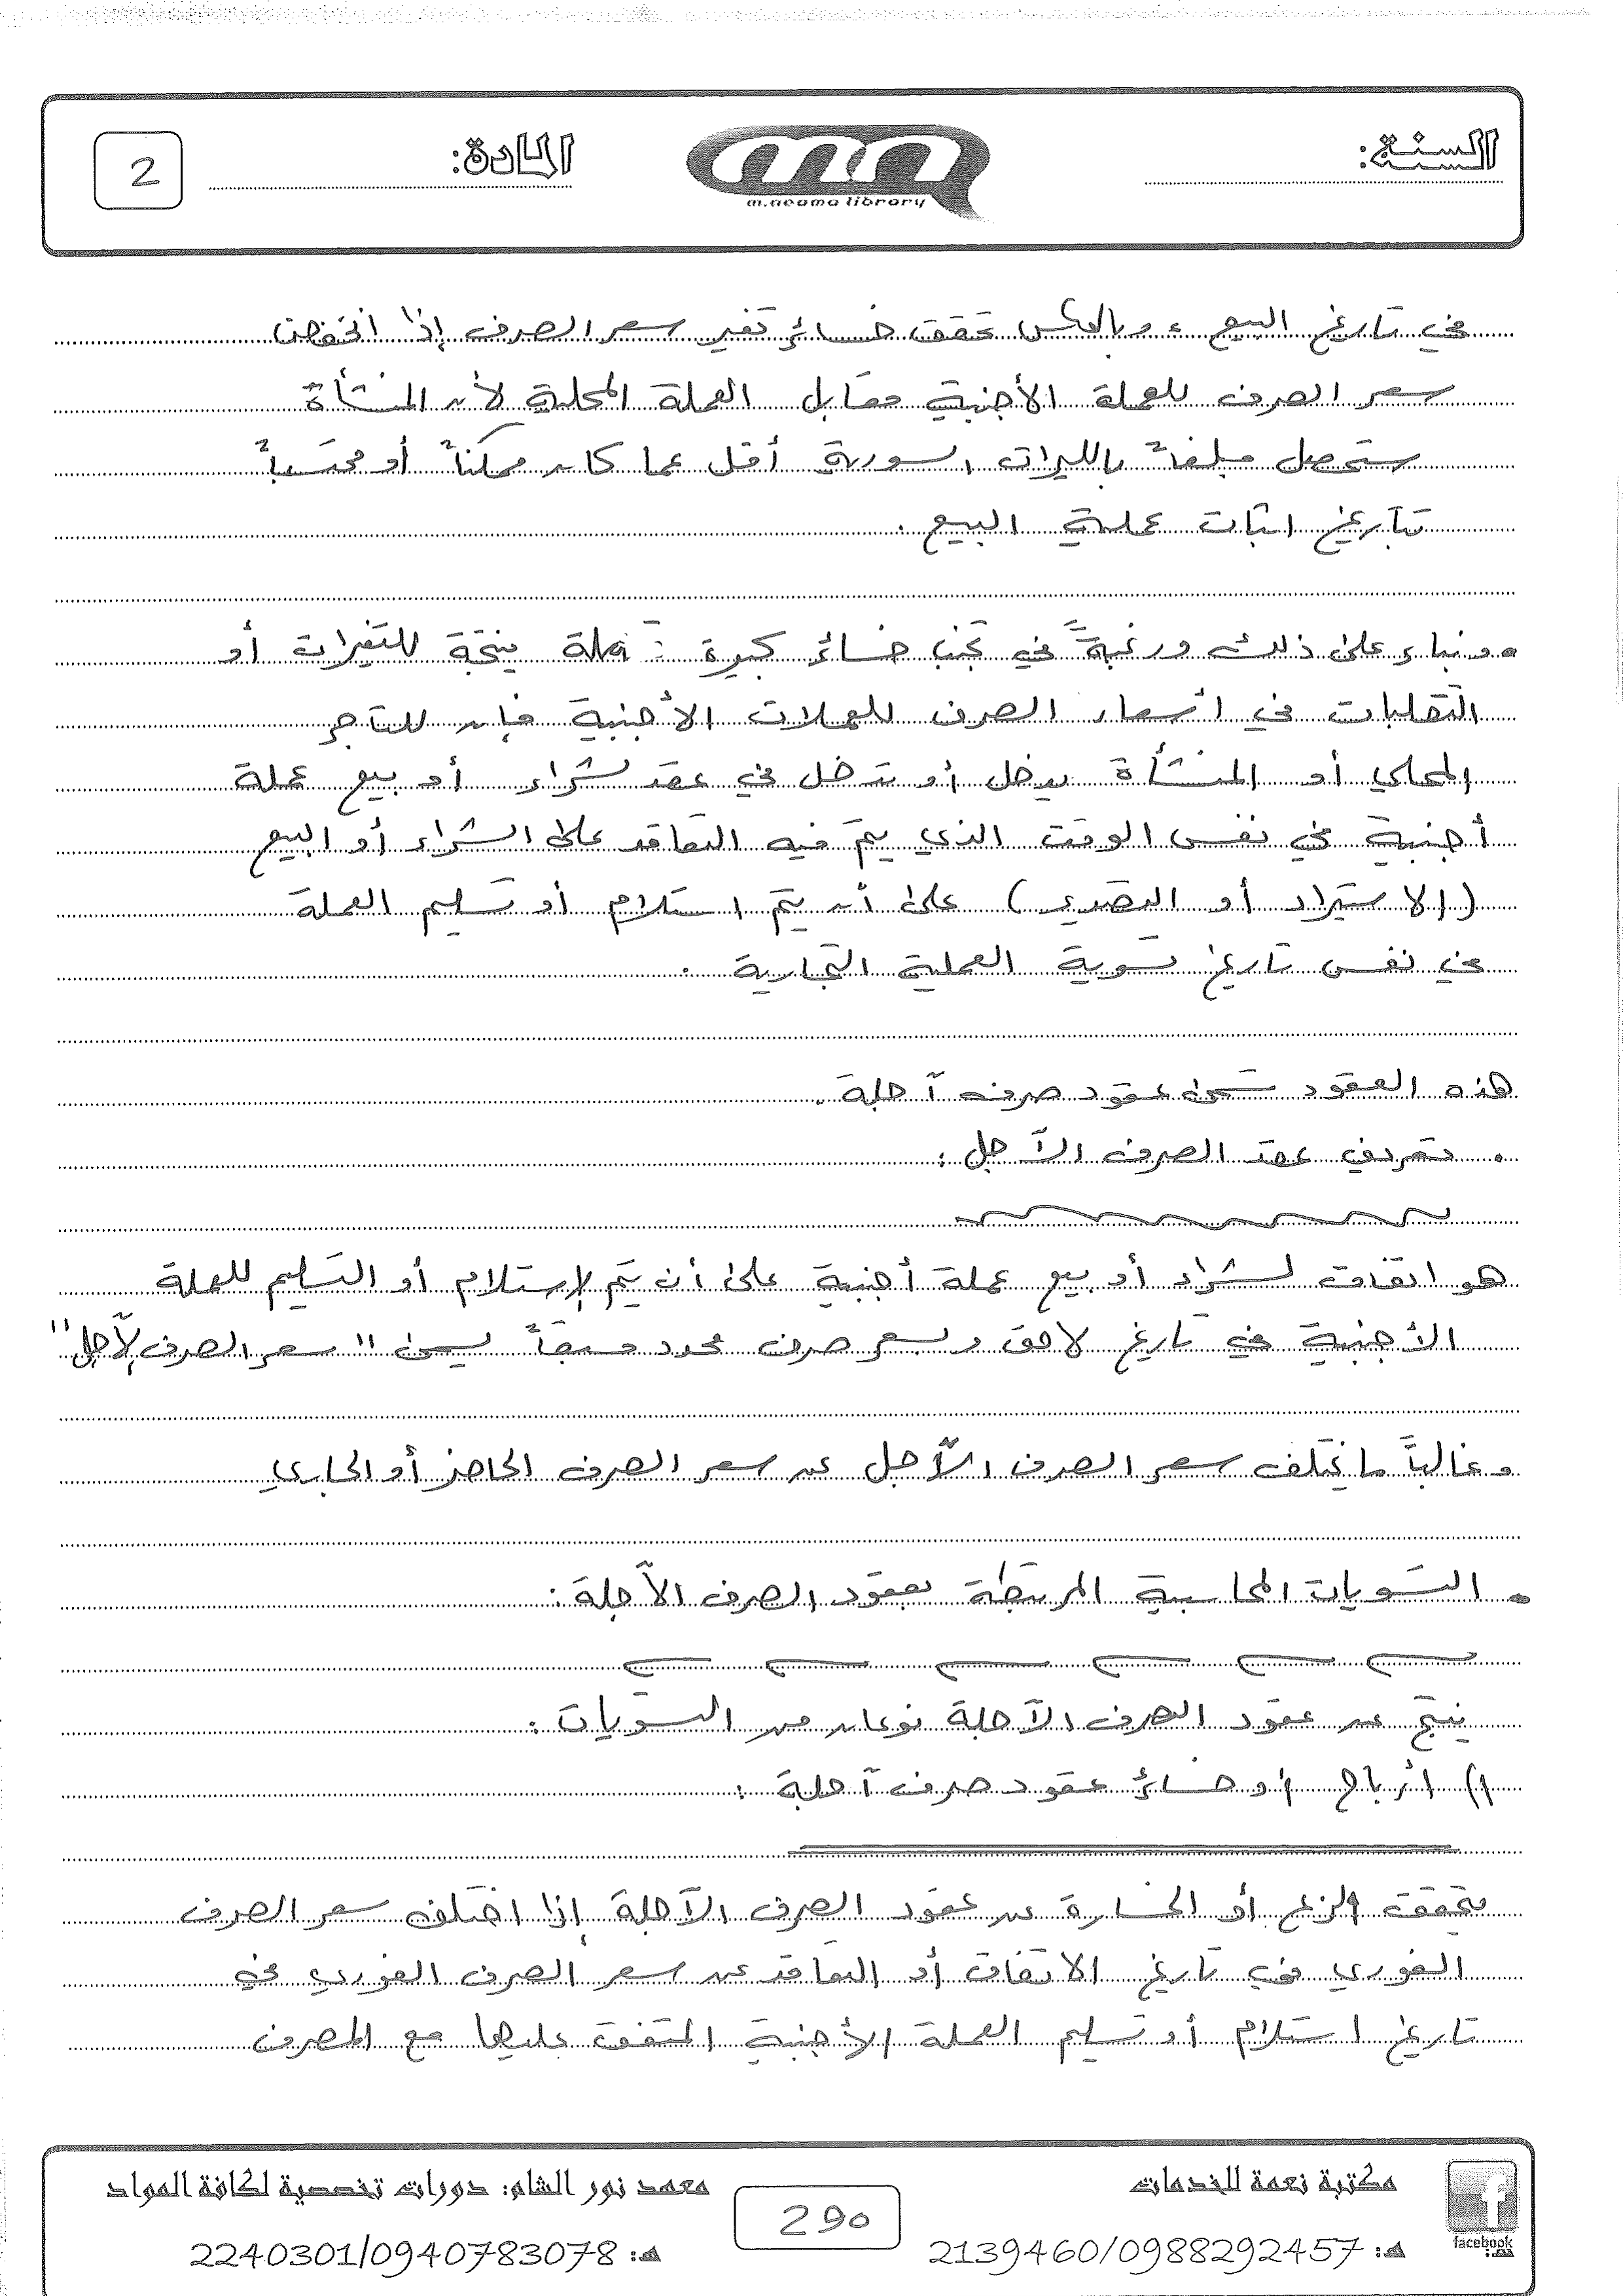 السنة:
m.neama library
المادة:
2
في تاريخ البيع، وبالعكس تحقق خسائر تغير سعر الصرف إذا انخفض
سعر الصرف للعملة الأجنبية مقابل العملة المحلية لأن المنشأة
ستحصل مبلغاً بالليرات السورية أقل عما كان ممكناً أو محتسباً
بتاريخ اثبات عملية البيع.
• وبناء على ذلك ورغبةً في تجنب خسائر كبيرة نتيجة للتغيرات أو
التقلبات في أسعار الصرف للعملات الأجنبية فإن للتاجر
المحلي أو المنشأة يدخل أو تدخل في عقد لشراء أو بيع عملة
أجنبية في نفس الوقت الذي يتم فيه التعاقد على الشراء أو البيع
(الاستيراد أو التصدير) على أن يتم استلام أو تسليم العملة
في نفس تاريخ تسوية العملية التجارية.
هذه العقود تسمى عقود صرف آجلة.
• تعريف عقد الصرف الآجل:
هو اتفاق لشراء أو بيع عملة أجنبية على أن يتم الإستلام أو التسليم للعملة
الأجنبية في تاريخ لاحق وبسعر صرف محدد مسبقاً يسمى "سعر الصرف الآجل"
وغالباً ما يختلف سعر الصرف الآجل عن سعر الصرف الحاضر أو الجاري
• التسويات المحاسبية المرتبطة بعقود الصرف الآجلة:
ينتج عن عقود الصرف الآجلة نوعان من التسويات:
١) أرباح أو خسائر عقود صرف آجلة:
يتحقق الربح أو الخسارة عن عقود الصرف الآجلة إذا اختلف سعر الصرف
الفوري في تاريخ الاتفاق أو التعاقد عن سعر الصرف الفوري في
تاريخ استلام أو تسليم العملة الأجنبية المتفق عليها مع المصرف
facebook
مكتبة نعمة للخدمات
هـ: 2139460/0988292457
290
معهد نور الشام: دورات تخصصية لكافة المواد
هـ: 2240301/0940783078